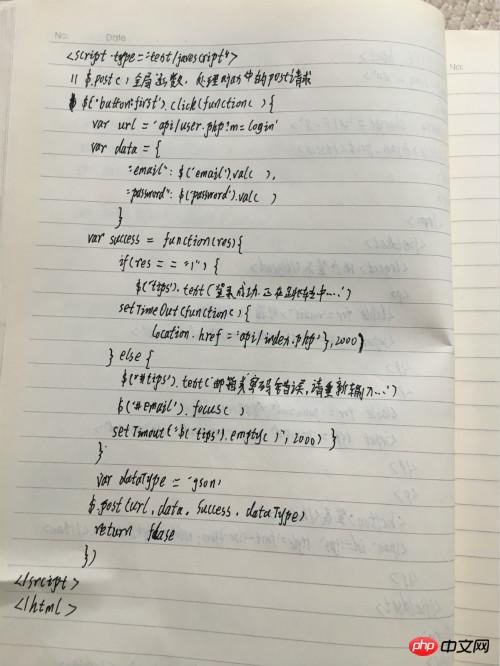 No.
Date
<script type="test/javascript">
// $.post() 全局函数, 处理ajax中的post请求
$('button:first').click(function() {
var url = 'api/user.php?m=login'
var data = {
"email": $('email').val( ),
"password": $('password').val( )
}
var success = function(res){
if(res == "1") {
$('tips').test('登录成功.正在跳转中...')
setTimeOut(function() {
location.href = 'api/index.php'}, 2000)
} else {
$('#tips').test('邮箱或密码错误,请重新输入...')
$('#email').focus( )
setTimout("$('tips').empty( )", 2000) }
}
var dataType = 'gson'
$.post(url, data, success, dataType)
return false
})
</srcipt>
</html>
No:
php中文网